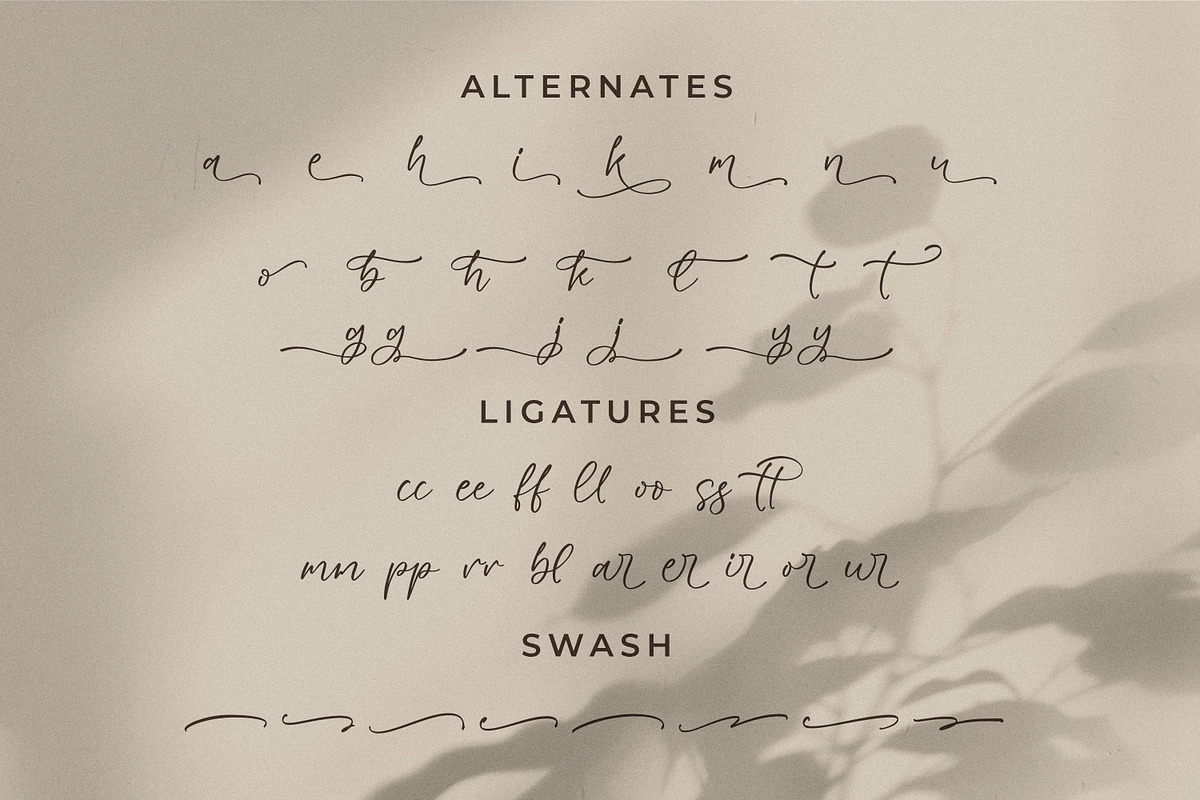 ALTERNATES
a e h i k m n u
o b h k l t t
g g j j y y
LIGATURES
cc ee ff ll oo ss tt
mn pp rr bl ar er ir or ur
SWASH